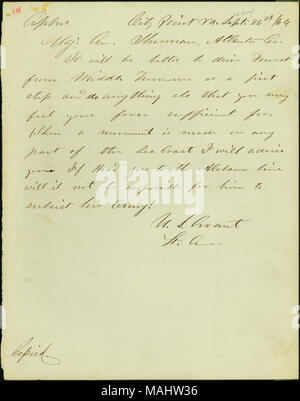 Cipher City Point Va. Sept. 26th/64
Maj. Gen. Sherman, Atlanta Ga.
It will be better to drive Forrest
from Middle Tennessee as a first
step and do anything else that you may
feel your force sufficient for.
When a movement is made on any
part of the Sea Coast I will advise
you. If Hood goes to the Alabama line
will it not be impossible for him to
subsist his Army?
U. S. Grant
Lt. Gen.
Copied
alamy
Image ID: MAHW36
www.alamy.com